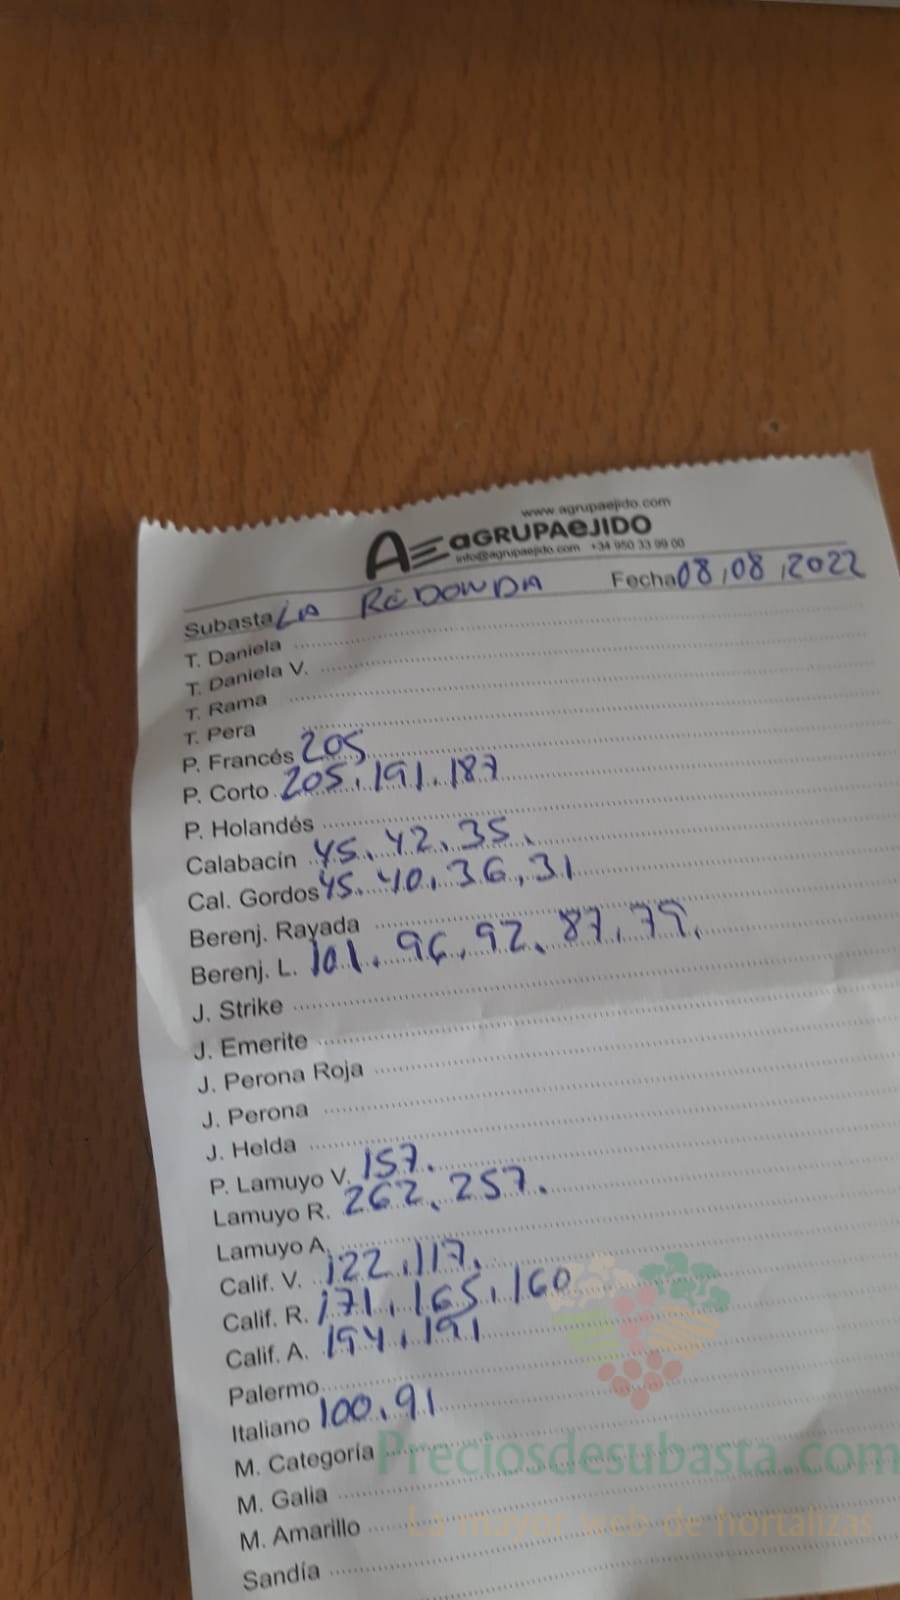 www.agrupaejido.com
AE aGRUPAeJIDO
info@agrupaejido.com +34 950 33 99 00
Subasta LA REDONDA Fecha 08,08,2022
T. Daniela
T. Daniela V.
T. Rama
T. Pera
P. Francés 205
P. Corto 205, 191, 187
P. Holandés
Calabacín 45, 42, 35,
Cal. Gordos 45, 40, 36, 31
Berenj. Rayada
Berenj. L. 101, 96, 92, 87, 79,
J. Strike
J. Emerite
J. Perona Roja
J. Perona
J. Helda
P. Lamuyo V. 157.
Lamuyo R. 262, 257.
Lamuyo A.
Calif. V. 122, 117,
Calif. R. 171, 165, 160
Calif. A. 194, 191
Palermo
Italiano 100, 91
M. Categoría
M. Galia
M. Amarillo
Sandía
Preciosdesubasta.com
La mayor web de hortalizas